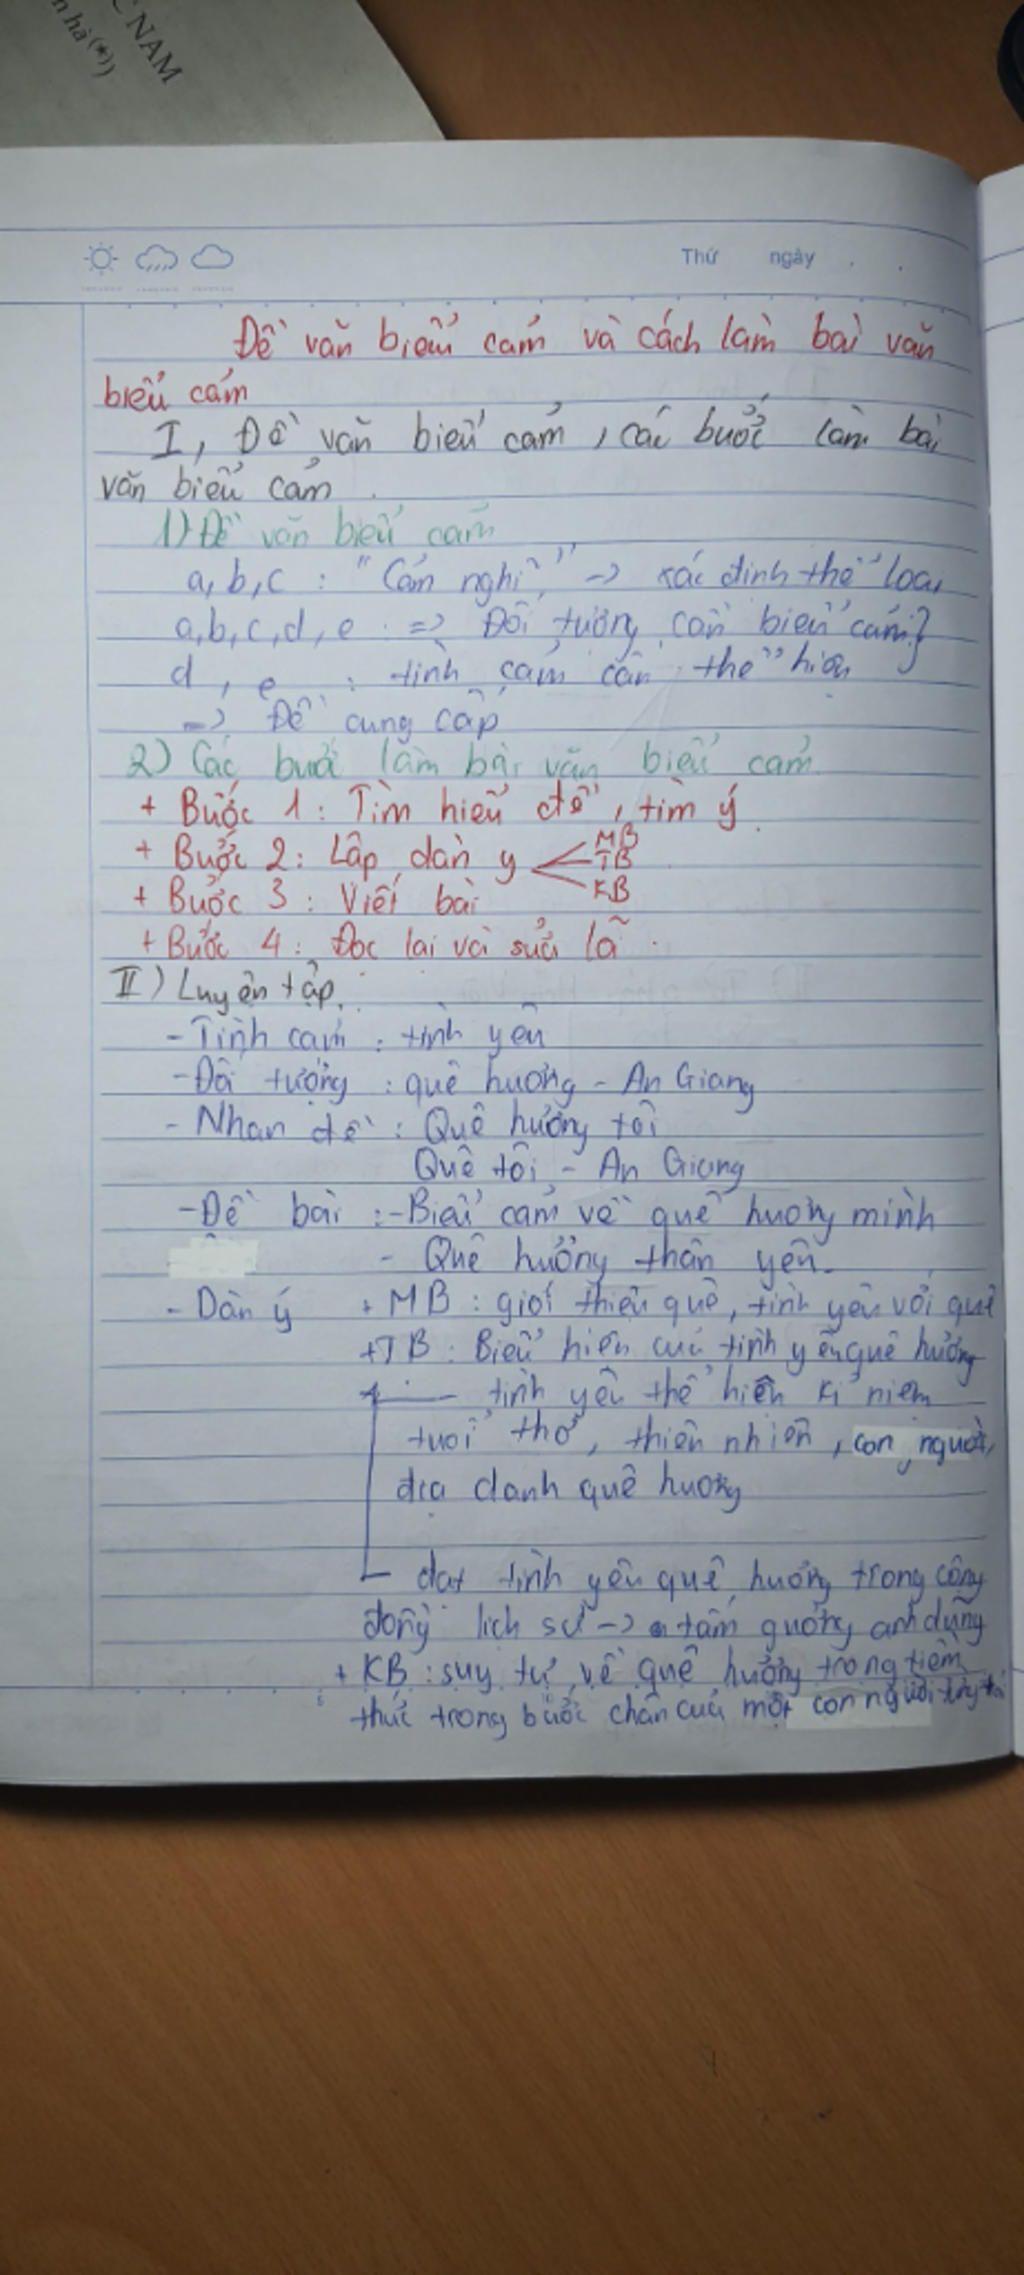 C NAM
n hà (*))
Thứ ngày
Đề văn biểu cảm và cách làm bài văn
biểu cảm
I, Đề văn biểu cảm, các bước làm bài
văn biểu cảm.
1) Đề văn biểu cảm
a, b, c : "Cảm nghĩ" -> xác định thể loại
a, b, c, d, e => Đối tượng cần biểu cảm }
d, e : tình cảm cần thể hiện
=> Đề cung cấp
2) Các bước làm bài văn biểu cảm
+ Bước 1 : Tìm hiểu đề, tìm ý.
+ Bước 2 : Lập dàn ý < MB
TB
KB
+ Bước 3 : Viết bài
+ Bước 4 : Đọc lại và sửa lỗi.
II) Luyện tập.
- Tình cảm : tình yêu
- Đối tượng : quê hương - An Giang
- Nhan đề : Quê hương tôi
Quê tôi - An Giang
- Đề bài : - Biểu cảm về quê hương mình
- Quê hương thân yên.
- Dàn ý + MB : giới thiệu quê, tình yêu với quê
+ TB : Biểu hiện của tình yêu quê hương
tình yêu thể hiện kỉ niệm
tuổi thơ, thiên nhiên, con người,
địa danh quê hương
đạt tình yêu quê hương trong cộng
đồng lịch sử -> tấm gương anh dũng
+ KB : suy tư về quê hương trong tiềm
thức trong bước chân của một con người